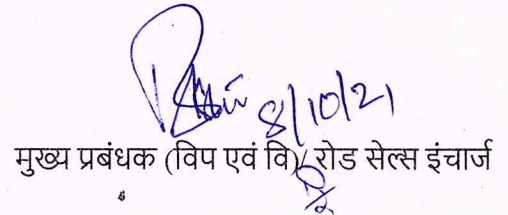 8/10/21
मुख्य प्रबंधक (विप एवं वि)/ रोड सेल्स इंचार्ज